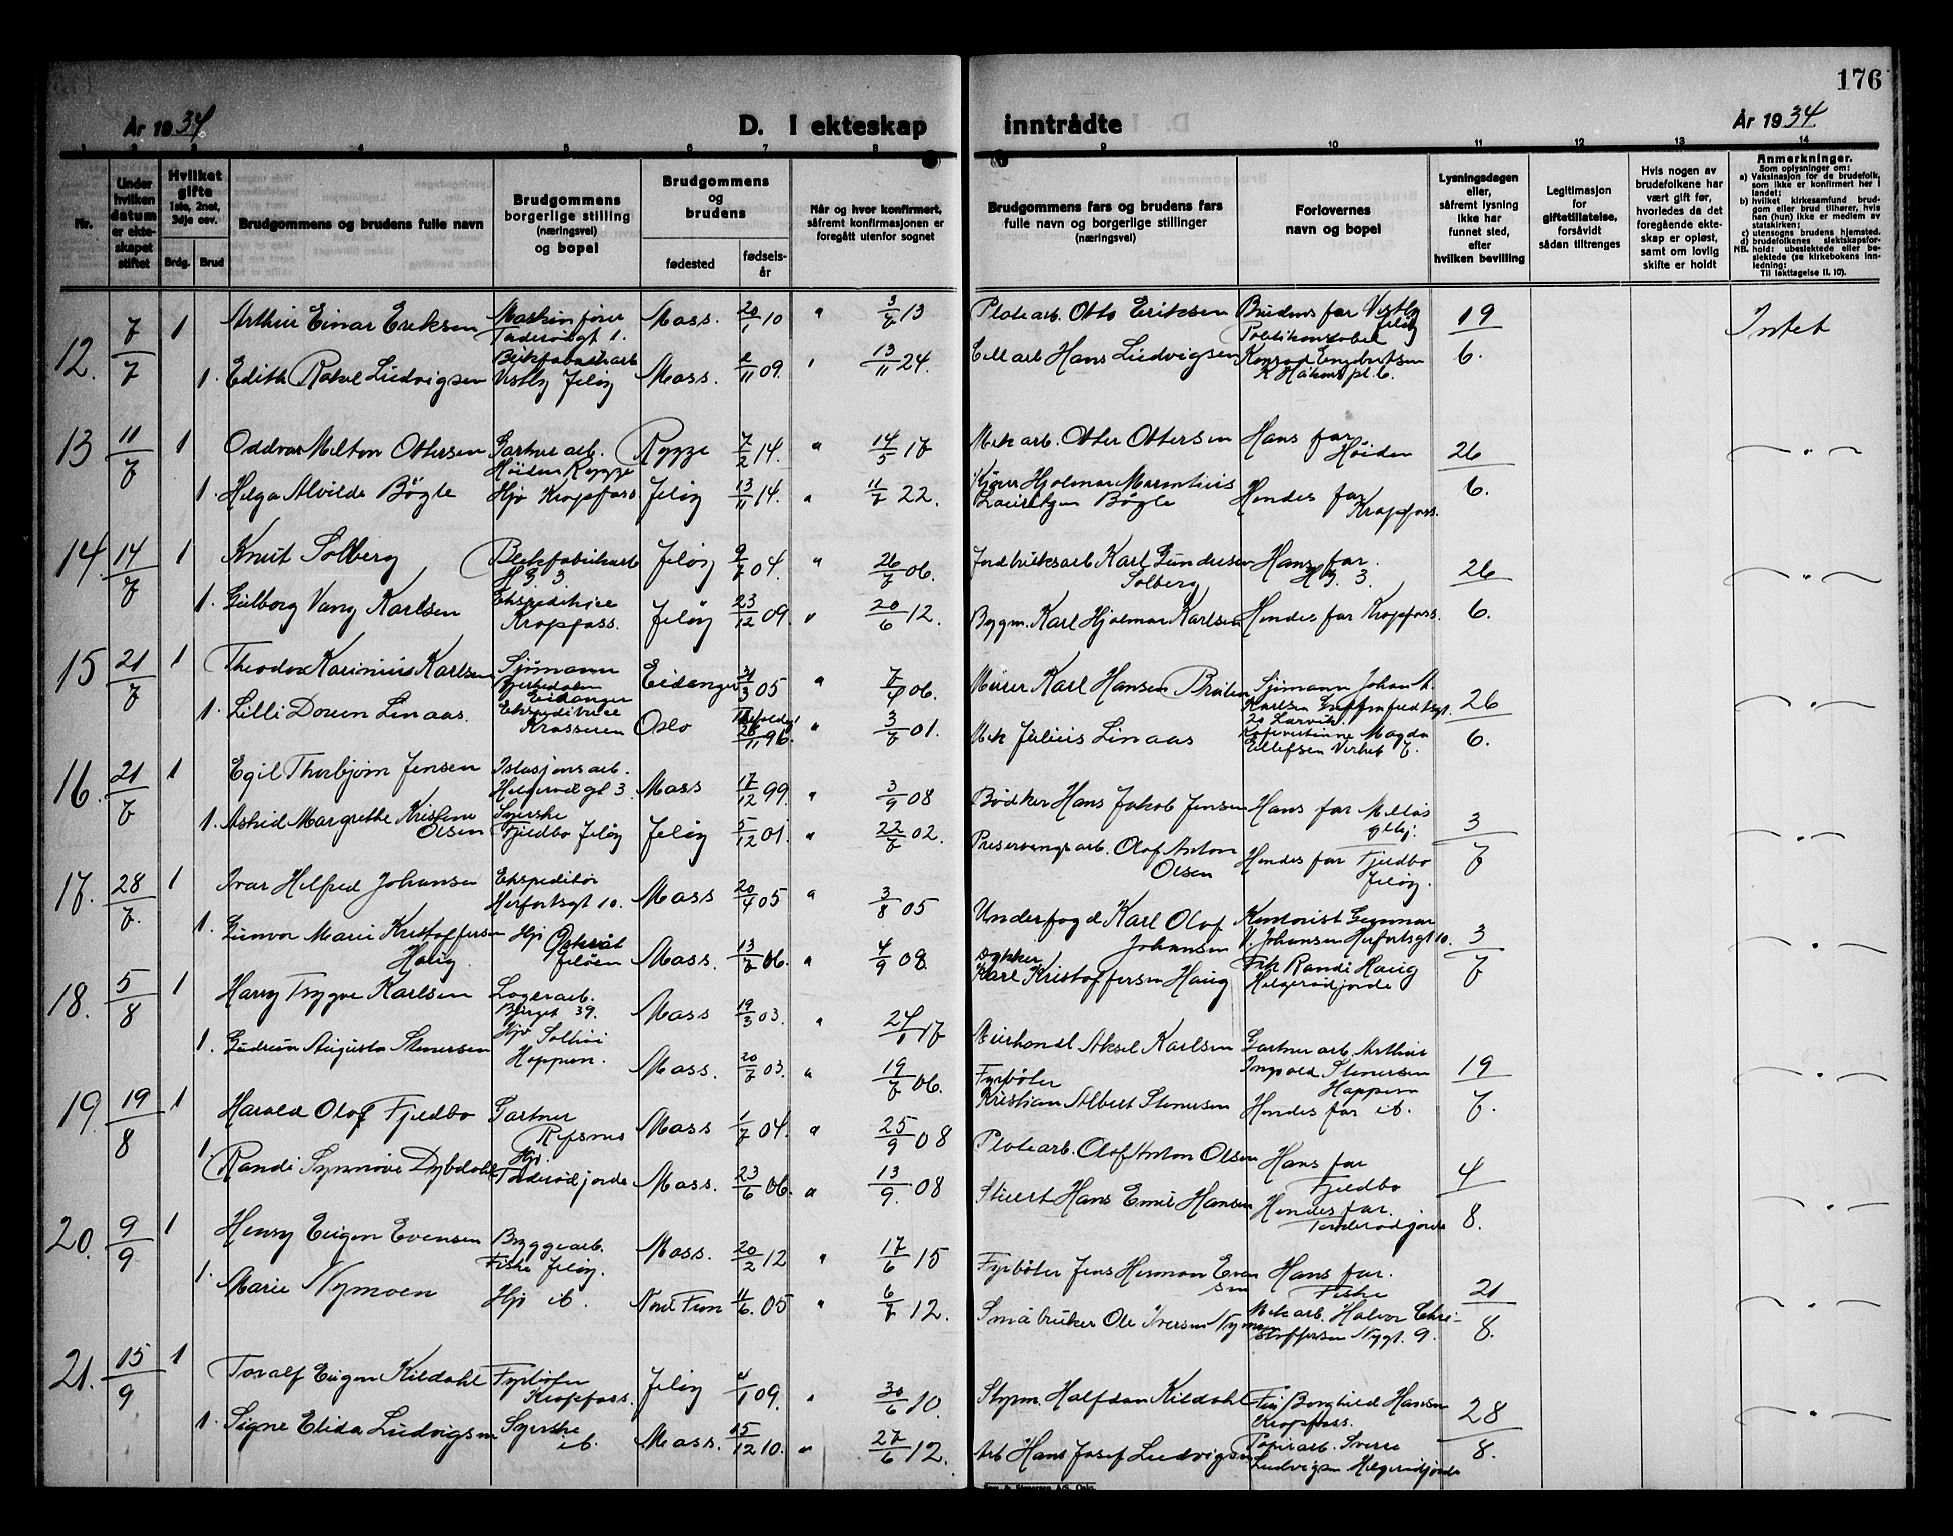 176
År 1934
D. I ekteskap inntrådte
År 1934
1 2 3 4 5 6 7 8 9 10 11 12 13 14
Nr.
Under hvilken datum er ekteskapet stiftet
Hvilket gifte 1ste, 2net, 3dje osv.
Brdg. Brud
Brudgommens og brudens fulle navn
Brudgommens borgerlige stilling (næringsvei) og bopel
Brudgommens og brudens
fødested
fødselsår
Når og hvor konfirmert, såfremt konfirmasjonen er foregått utenfor sognet
Brudgommens fars og brudens fars fulle navn og borgerlige stillinger (næringsvei)
Forlovernes navn og bopel
Lysningsdagen eller, såfremt lysning ikke har funnet sted, efter hvilken bevilling
Legitimasjon for giftetillatelse, forsåvidt sådan tiltrenges
Hvis nogen av brudefolkene har vært gift før, hvorledes da det foregående ekteskap er opløst, samt om lovlig skifte er holdt
Anmerkninger.
Som oplysninger om:
a) Vaksinasjon for de brudefolk, som ikke er konfirmert her i landet;
b) hvilket kirkesamfund brudgom eller brud tilhører, hvis han (hun) ikke er medlem av statskirken;
c) utensogns brudens hjemsted.
d) brudefolkenes slektskapsforhold: ubeslektede eller beslektede (se kirkebokens innledning:
NB. Til iakttagelse II. 10).
12. 7/7 1 Arthur Einar Eriksen Maskinfører Moss. 20/1 10 " 3/7 13 Platearb. Otto Eriksen Brudens far Vestby Jeløy 19/6. Intet
1. Edith Rakel Ludvigsen Vestby Jeløy Moss. 2/11 09. " 13/11 24. Cellarb Hans Ludvigsen Konrad Engebretsen K Håkons pl. 6.
13 11/7 1 Oddvar Milton Ottersen Gartnerarb. Høiden Rygge Rygge 7/2 14. " 14/5 17 Mekarb. Otter Ottersen Hans far Høiden 26/6. — " —
1. Helga Alvilde Bøgle Hjv Kropfoss Jeløy 13/11 14. " 11/7 22. Hjalmar Bøgle Hendes far Kropfoss.
14. 14/7 1 Knut Solberg Blekfabrikarb H.G. 3. Jeløy 9/7 04. " 26/7 06. Jordbruksarb Karl Gundersen Solberg Hans far. H.G. 3. 26/6. — " —
1. Gulborg Vang Karlsen Ekspeditrise Kropfoss. Jeløy 23/12 09. " 20/6 12. Byggm. Karl Hjalmar Karlsen Hendes far Kropfoss.
15 21/7 1 Theodor Karinius Karlsen Sjømann Eidanger Eidanger 31/3 05 " 7/4 06. Murer Karl Hansen Sjømann Johan Karlsen 20 Larvik. 26/6. — " —
1. Lilli Doren Linaas. Ekspeditrise Oslo 28/11 96. " 3/7 01. Mek Julius Linaas Magda Ellefsen Verket 7.
16. 21/7 1 Egil Thorbjørn Jensen Stasjonsarb. Helgerødgt 3. Moss 17/12 99. " 3/9 08 Bødker Hans Jakob Jensen Hans far Melløs 3/7 — " —
1. Astrid Margrethe Kristine Olsen Syerske Fjeldbo Jeløy Jeløy 5/12 01. " 22/7 02. Preserveringsarb. Olaf Anton Olsen Hendes far Fjeldbo Jeløy.
17. 28/7. 1 Ivar Helfred Johansen Ekspeditør Herfortsgt 10. Moss 20/4 05 " 3/8 05 Underfogd Karl Olaf Johansen Kontorist Gunnar V. Johansen Herfortsgt 10. 3/7 — " —
1. Gunvor Marie Kristoffersen Haug Hjv Jeløen Moss. 13/7 06. " 4/9 08 Dykker Karl Kristoffersen Haug Frk Randi Haug Helgerødjorde
18. 5/8 1 Harry Trygve Karlsen Lagerarb. Berget 39. Moss 19/3 03. " 24/ 17 Murhandl Aksel Karlsen Gartnerarb. Arthur Ingvald Stenersen Hoppern 19/7. — " —
1. Gudrun Augusta Stenersen Hjv Hoppern. Moss. 20/7 03. " 19/7 06. Fyrbøter Kristian Albert Stenersen Hendes far ib.
19. 19/8 1 Harald Olaf Fjeldbo Gartner Refsnes Moss 1/7 04. " 25/9 08 Platearb. Olaf Anton Olsen Hans far Fjeldbo 4/8. — " —
1. Randi Synnøve Dybdahl Hjv. Tronderødjorde Moss. 23/6 06. " 13/9. 08 Stuert Hans Emil Hansen Hendes far.
20. 9/9 1 Henry Eugen Evensen Byggearb. Fiske Jeløy. Moss. 20/2 12 " 17/6 15 Fyrbøter Jens Herman Evensen Hans far. Fiske 21/8. — " —
1. Marie Nymoen Hjv ib. Nord Fron 11/6. 05 " 6/7 12. Småbruker Ole Iversen Nymoen Mekarb. Halvor Christoffersen Nygt. 9.
21. 15/9 1 Toralf Eugen Kildahl Fyrbøter Kropfoss. Jeløy 4/1 09. " 30/6 10. Styrm. Halfdan Kildahl Fru Borghild Hansen Kropfoss. 28/8. — " —
1. Signe Elida Ludvigsen Syerske ib. Moss. 15/12 10. " 27/6 12. Arb Hans Josef Ludvigsen Papirarb. Sverre Ludvigsen Helgerødjorde